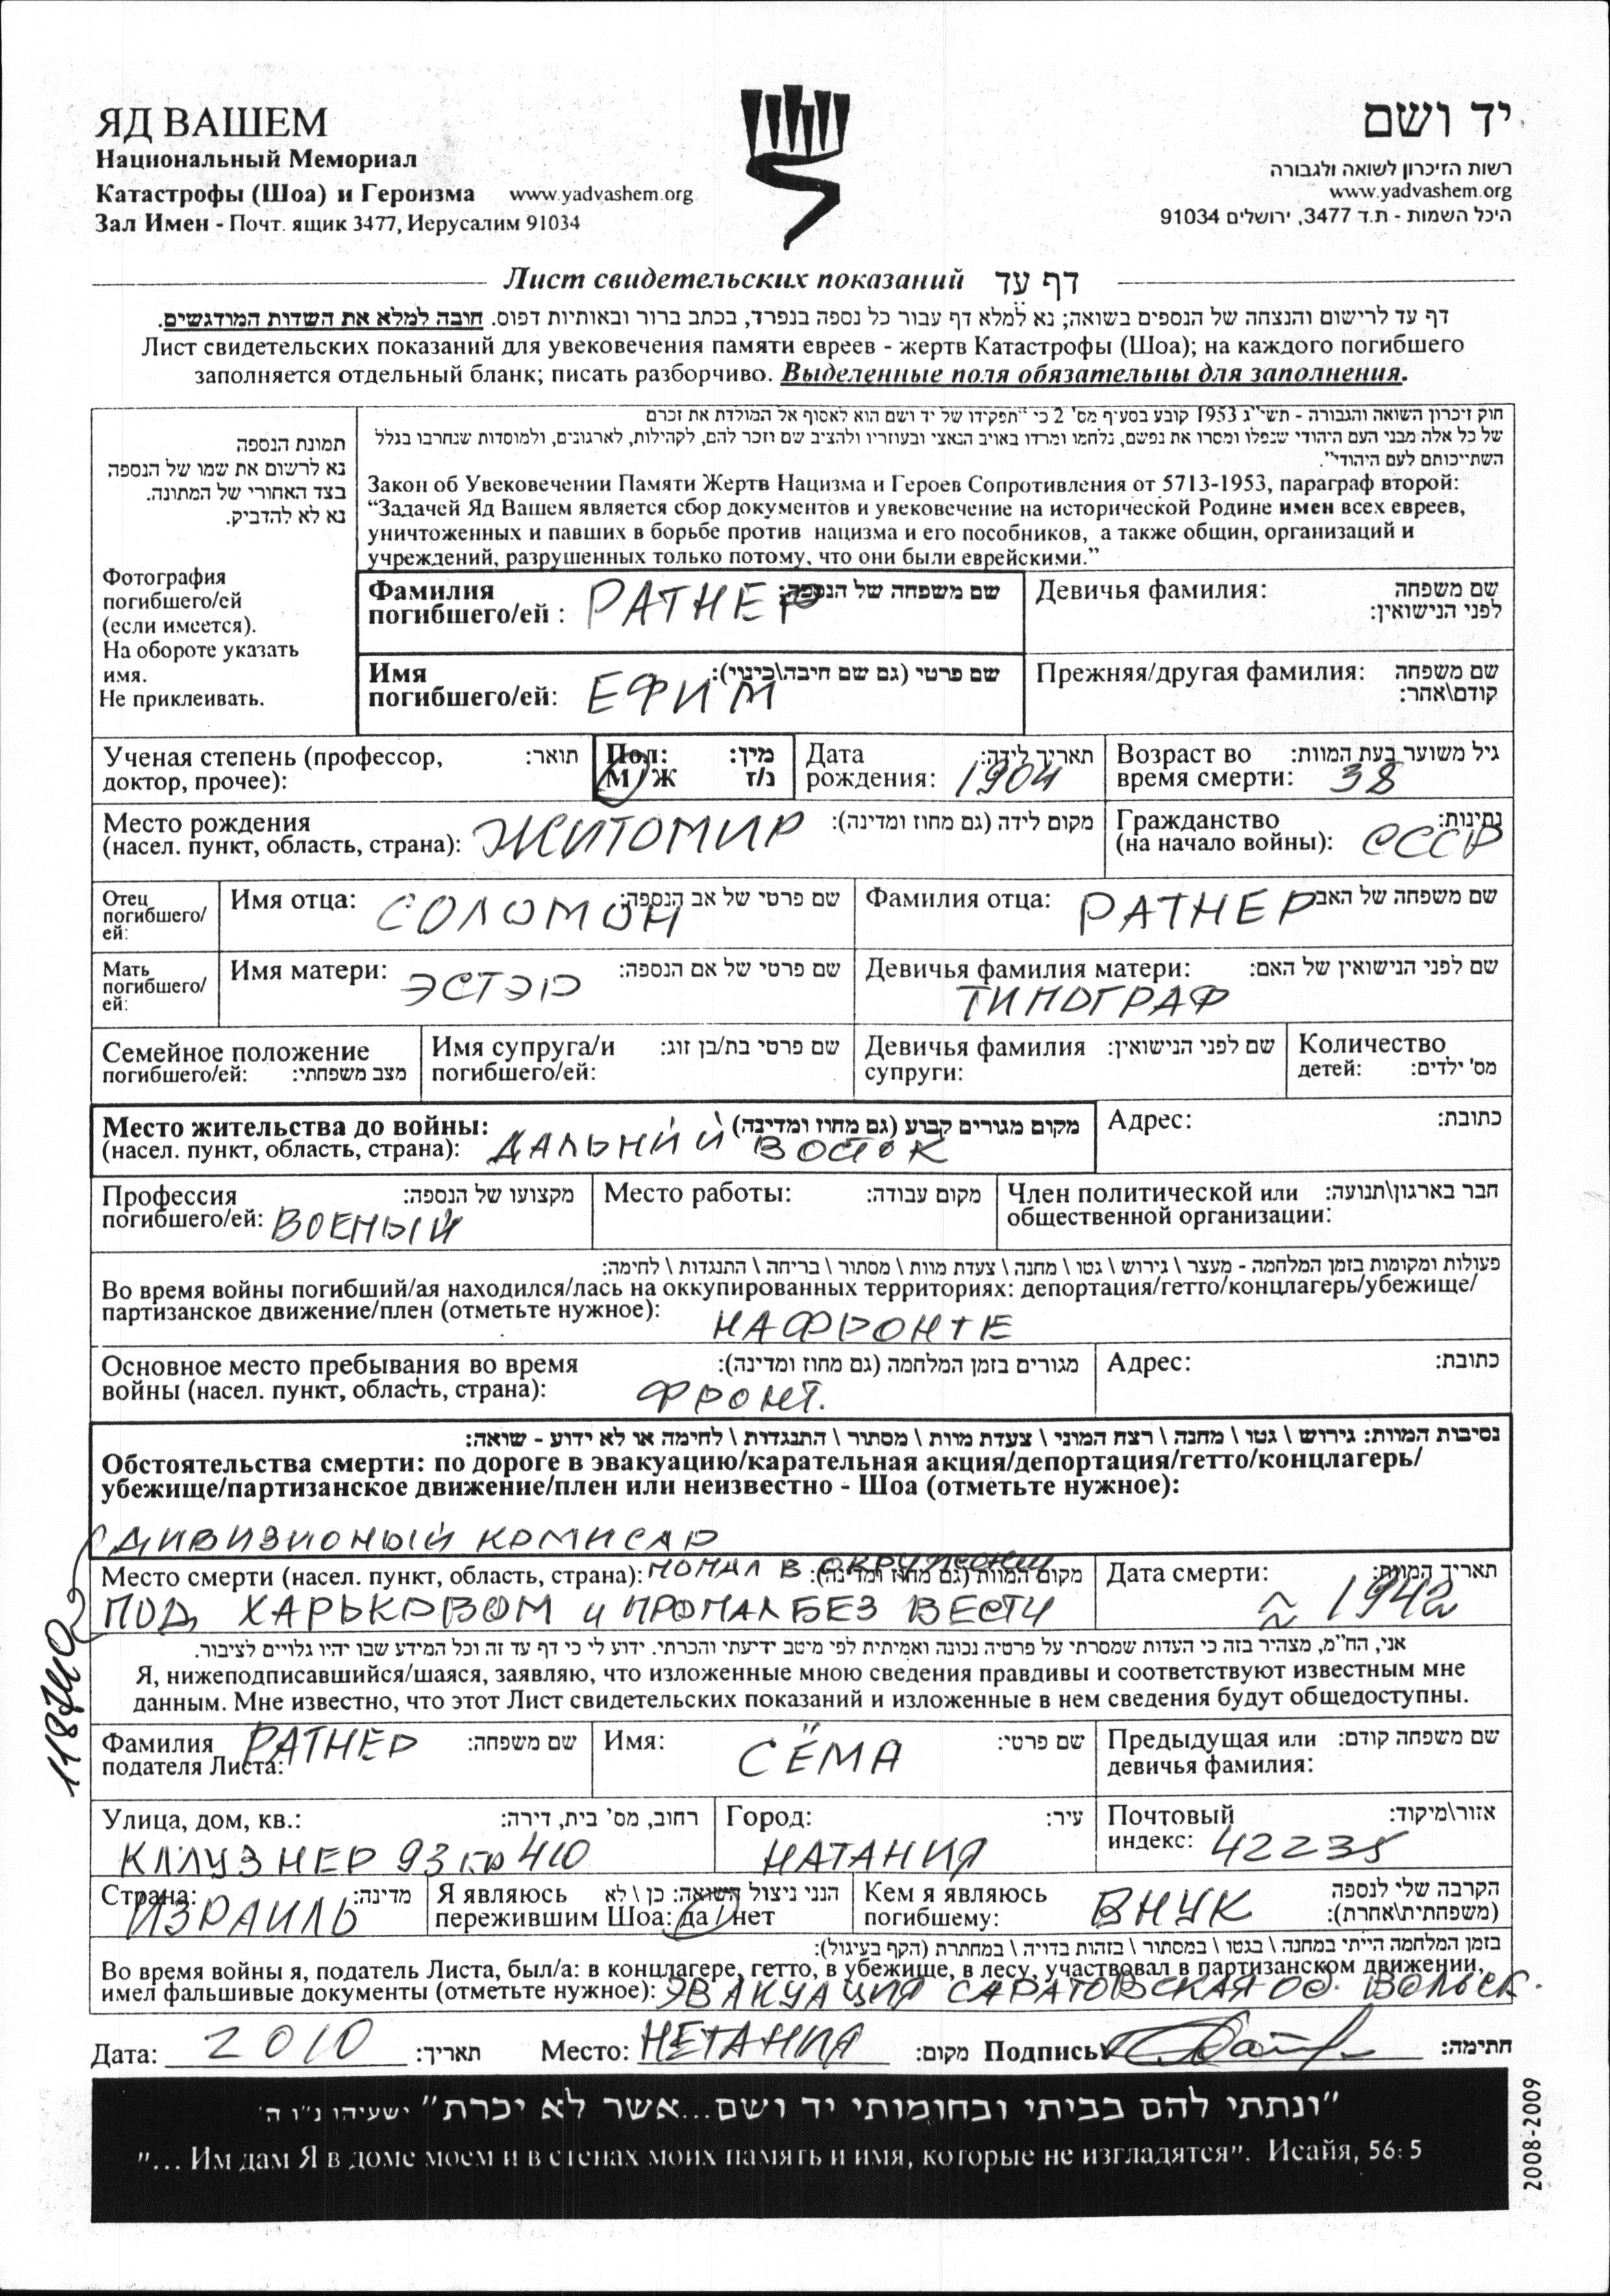 ЯД ВАШЕМ
Национальный Мемориал
Катастрофы (Шоа) и Героизма www.yadvashem.org
Зал Имен - Почт. ящик 3477, Иерусалим 91034
יד ושם
רשות הזיכרון לשואה ולגבורה
www.yadvashem.org
היכל השמות - ת.ד 3477, ירושלים 91034
Лист свидетельских показаний דף עד
דף עד לרישום והנצחה של הנספים בשואה; נא למלא דף עבור כל נספה בנפרד, בכתב ברור ובאותיות דפוס. חובה למלא את השדות המודגשים.
Лист свидетельских показаний для увековечения памяти евреев - жертв Катастрофы (Шоа); на каждого погибшего
заполняется отдельный бланк; писать разборчиво. Выделенные поля обязательны для заполнения.
תמונת הנספה
נא לרשום את שמו של הנספה
בצד האחורי של המתונה.
נא לא להדביק.
Фотография
погибшего/ей
(если имеется).
На обороте указать
имя.
Не приклеивать.
חוק זיכרון השואה והגבורה - תשי"ג 1953 קובע בסעיף מס' 2 כי "תפקידו של יד ושם הוא לאסוף אל המולדת את זכרם
של כל אלה מבני העם היהודי שנפלו ומסרו את נפשם, נלחמו ומרדו באויב הנאצי ובעוזריו ולהציב שם וזכר להם, לקהילות, לארגונים, ולמוסדות שנחרבו בגלל
השתייכותם לעם היהודי".
Закон об Увековечении Памяти Жертв Нацизма и Героев Сопротивления от 5713-1953, параграф второй:
“Задачей Яд Вашем является сбор документов и увековечение на исторической Родине имен всех евреев,
уничтоженных и павших в борьбе против нацизма и его пособников, а также общин, организаций и
учреждений, разрушенных только потому, что они были еврейскими.”
Фамилия שם משפחה של הנספה:
погибшего/ей : РАТНЕР
Девичья фамилия: שם משפחה
לפני הנישואין:
Имя שם פרטי (גם שם חיבה\כינוי):
погибшего/ей: ЕФИМ
Прежняя/другая фамилия: שם משפחה
קודם\אחר:
Ученая степень (профессор, תואר:
доктор, прочее):
Пол: מין:
М/Ж נ/ז
Дата תאריך לידה:
рождения: 1904
Возраст во גיל משוער בעת המוות:
время смерти: 38
Место рождения מקום לידה (גם מחוז ומדינה):
(насел. пункт, область, страна): ЖИТОМИР
Гражданство נתינות:
(на начало войны): СССР
Отец
погибшего/
ей:
Имя отца: СОЛОМОН שם פרטי של אב הנספה:
Фамилия отца: РАТНЕР שם משפחה של האב
Мать
погибшего/
ей:
Имя матери: ЭСТЭР שם פרטי של אם הנספה:
Девичья фамилия матери: שם לפני הנישואין של האם:
ТИПОГРАФ
Семейное положение
погибшего/ей: מצב משפחתי:
Имя супруга/и שם פרטי בת/בן זוג:
погибшего/ей:
Девичья фамилия שם לפני הנישואין:
супруги:
Количество
детей: מס' ילדים:
Место жительства до войны: מקום מגורים קבוע (גם מחוז ומדינה)
(насел. пункт, область, страна): ДАЛЬНИЙ ВОСТОК
Адрес: כתובת:
Профессия מקצועו של הנספה:
погибшего/ей: ВОЕНЫЙ
Место работы: מקום עבודה:
Член политической или חבר בארגון\תנועה:
общественной организации:
פעולות ומקומות בזמן המלחמה - מעצר \ גירוש \ גטו \ מחנה \ צעדת מוות \ מסתור \ בריחה \ התנגדות \ לחימה:
Во время войны погибший/ая находился/лась на оккупированных территориях: депортация/гетто/концлагерь/убежище/
партизанское движение/плен (отметьте нужное):
НА ФРОНТЕ
Основное место пребывания во время מגורים בזמן המלחמה (גם מחוז ומדינה):
войны (насел. пункт, область, страна): ФРОНТ.
Адрес: כתובת:
נסיבות המוות: גירוש \ גטו \ מחנה \ רצח המוני \ צעדת מוות \ מסתור \ התנגדות \ לחימה או לא ידוע - שואה:
Обстоятельства смерти: по дороге в эвакуацию/карательная акция/депортация/гетто/концлагерь/
убежище/партизанское движение/плен или неизвестно - Шоа (отметьте нужное):
ДИВИЗИОНЫЙ КОМИСАР
Место смерти (насел. пункт, область, страна): מקום המוות (גם מחוז ומדינה):
ПОПАЛ В
ПОД ХАРЬКОВОМ и ПРОПАЛ БЕЗ ВЕСТИ
Дата смерти: תאריך המוות:
≈ 1942
118740
אני, הח"מ, מצהיר בזה כי העדות שמסרתי על פרטיה נכונה ואמיתית לפי מיטב ידיעתי והכרתי. ידוע לי כי דף עד זה וכל המידע שבו יהיו גלויים לציבור.
Я, нижеподписавшийся/шаяся, заявляю, что изложенные мною сведения правдивы и соответствуют известным мне
данным. Мне известно, что этот Лист свидетельских показаний и изложенные в нем сведения будут общедоступны.
Фамилия РАТНЕР שם משפחה:
подателя Листа:
Имя: СЁМА שם פרטי:
Предыдущая или שם משפחה קודם:
девичья фамилия:
Улица, дом, кв.: רחוב, מס' בית, דירה:
КЛАУЗНЕР 93 кв 410
Город: עיר:
НАТАНИЯ
Почтовый אזור\מיקוד:
индекс: 42235
Страна: מדינה:
ИЗРАИЛЬ
Я являюсь הנני ניצול השואה: כן \ לא
пережившим Шоа: да / нет
Кем я являюсь הקרבה שלי לנספה
погибшему: ВНУК (משפחתית\אחרת):
בזמן המלחמה הייתי במחנה \ בגטו \ במסתור \ בזהות בדויה \ במחתרת (הקף בעיגול):
Во время войны я, податель Листа, был/а: в концлагере, гетто, в убежище, в лесу, участвовал в партизанском движении,
имел фальшивые документы (отметьте нужное): ЭВАКУАЦИЯ САРАТОВСКАЯ ОБ. ВОЛЬСК.
Дата: 2010 תאריך: Место: НЕТАНИЯ מקום: Подпись חתימה:
"ונתתי להם בביתי ובחומותי יד ושם...אשר לא יכרת" ישעיהו נ"ו ה'
"... Им дам Я в доме моем и в стенах моих память и имя, которые не изгладятся". Исайя, 56: 5
2008-2009